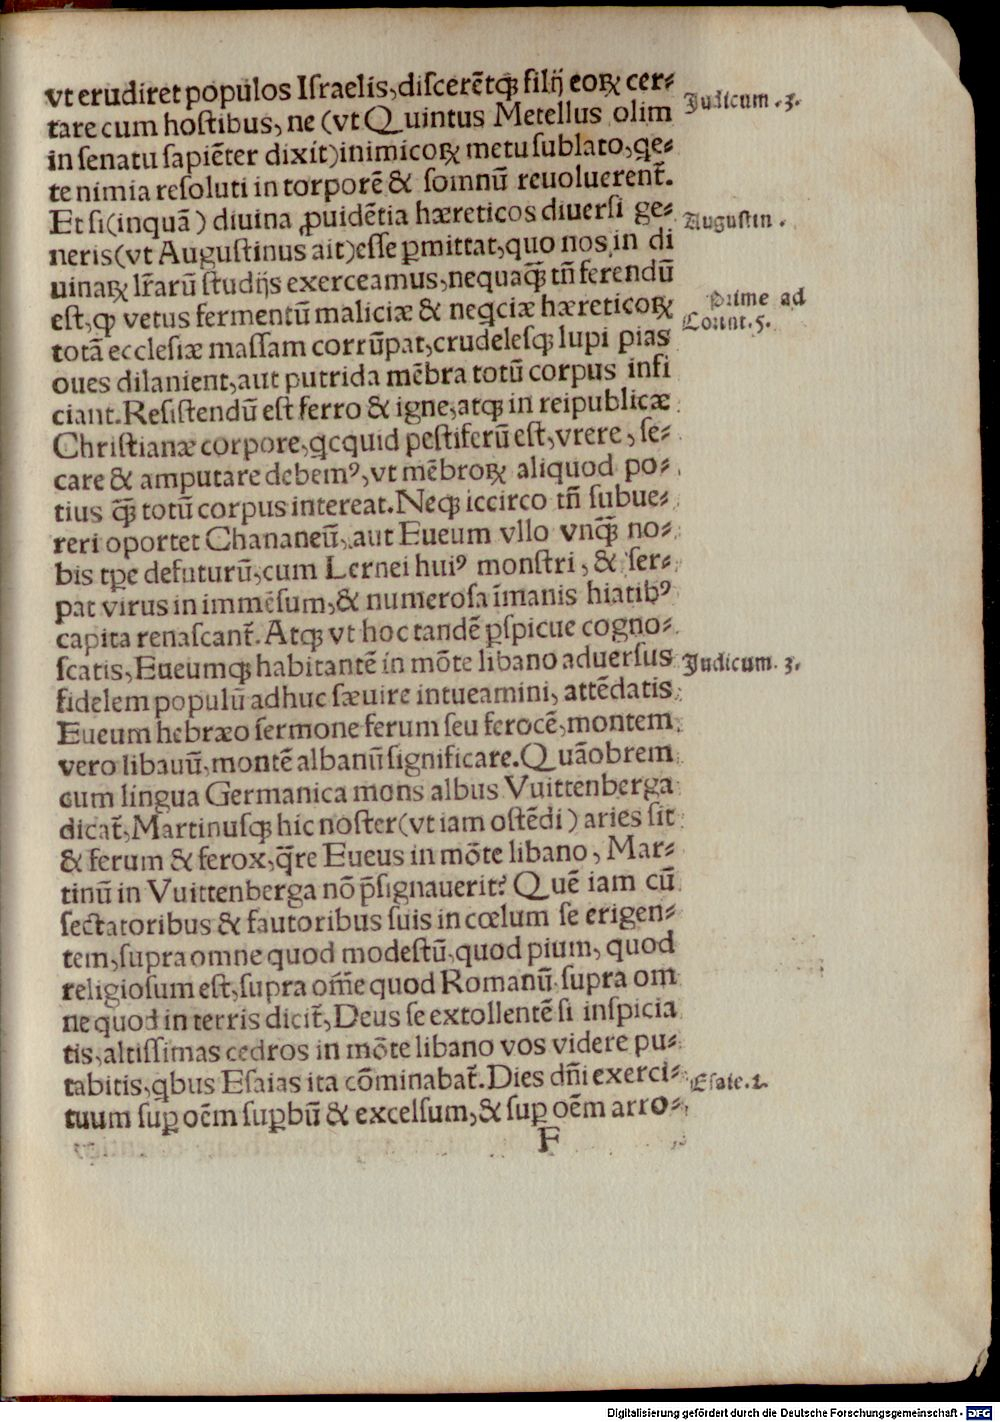 vt erudiret populos Iſraelis, diſcerẽtqꝫ filij eoꝝ cer⸗
tare cum hoſtibus, ne (vt Quintus Metellus olim
in ſenatu ſapiẽter dixit) inimicoꝝ metu ſublato, qe⸗
te nimia reſoluti in torporẽ & ſomnũ reuoluerent̃.
Et ſi (inquã) diuina ꝓuidẽtia hæreticos diuerſi ge⸗
neris (vt Auguſtinus ait) eſſe ꝑmittat, quo nos in di
uinaꝝ lr̃arũ ſtudijs exerceamus, nequaqꝫ̃ tñ ferendũ
eſt, ꝙ vetus fermentũ maliciæ & neqciæ hæreticoꝝ
totã eccleſiæ maſſam corrũpat, crudeleſqꝫ lupi pias
oues dilanient, aut putrida mẽbra totũ corpus infi
ciant. Reſiſtendũ eſt ferro & igne, atqꝫ in reipublicæ
Chriſtianæ corpore, qcquid peſtiferũ eſt, vrere, ſe⸗
care & amputare debemꝰ, vt mẽbroꝝ aliquod po⸗
tius qꝫ̃ totũ corpus intereat. Neqꝫ iccirco tñ ſubue⸗
reri oportet Chananeũ, aut Eueum vllo vnqꝫ̃ no⸗
bis tꝑe defuturũ, cum Lernei huiꝰ monſtri, & ſer⸗
pat virus in immẽſum, & numeroſa ĩmanis hiatibꝰ
capita renaſcant̃. Atqꝫ vt hoc tandẽ ꝑſpicue cogno⸗
ſcatis, Eueumqꝫ habitantẽ in mõte libano aduerſus
fidelem populũ adhuc ſæuire intueamini, attẽdatis
Eueum hebræo ſermone ferum ſeu ferocẽ, montem
vero libauũ, montẽ albanũ ſignificare. Quãobrem
cum lingua Germanica mons albus Vuittenberga
dicat̃, Martinuſqꝫ hic noſter (vt iam oſtẽdi) aries ſit
& ferum & ferox, q̃re Eueus in mõte libano, Mar⸗
tinũ in Vuittenberga nõ p̃ſignauerit? Quẽ iam cũ
ſectatoribus & fautoribus ſuis in cœlum ſe erigen⸗
tem, ſupra omne quod modeſtũ, quod pium, quod
religioſum eſt, ſupra om̃e quod Romanũ, ſupra om
ne quod in terris dicit̃, Deus ſe extollentẽ ſi inſpicia
tis, altiſſimas cedros in mõte libano vos videre pu⸗
tabitis, qbus Eſaias ita cõminabat̃. Dies dñi exerci⸗
tuum ſuꝑ oẽm ſuꝑbũ & excelſum, & ſuꝑ oẽm arro⸗
F
Judicum .3.
Auguſtin .
Prime ad
Corint. 5.
Judicum. 3.
Eſaie. 2.
Digitalisierung gefördert durch die Deutsche Forschungsgemeinschaft - DFG